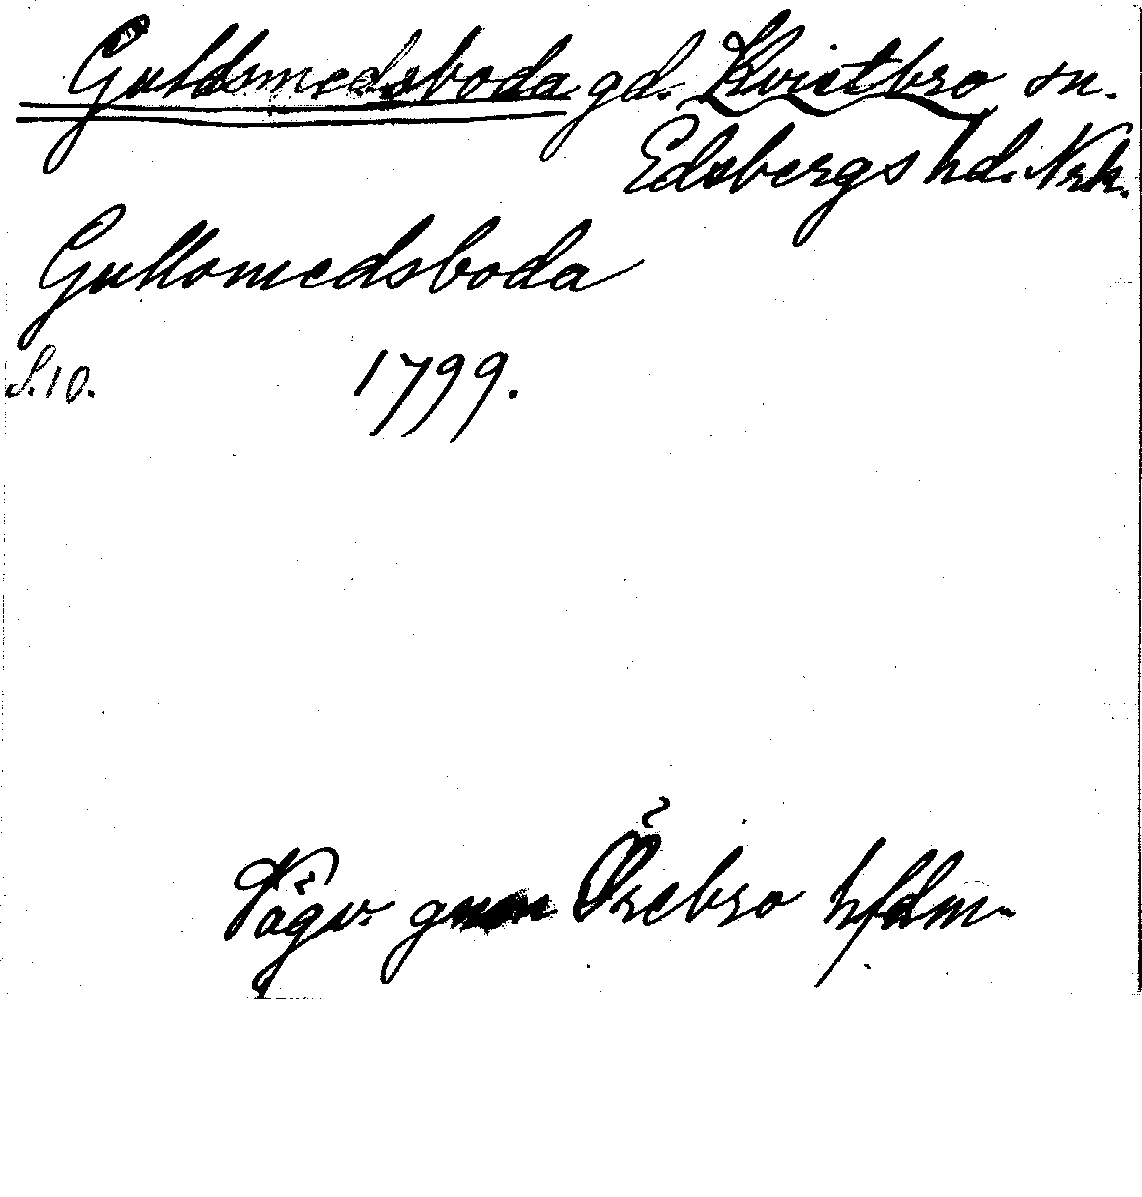 Guldsmedsboda gd. Kvistbro sn.
Edsbergs hd. Nrk.
Gullsmedsboda
S.10. 1799.
Vägv. genom Örebro hfdm.